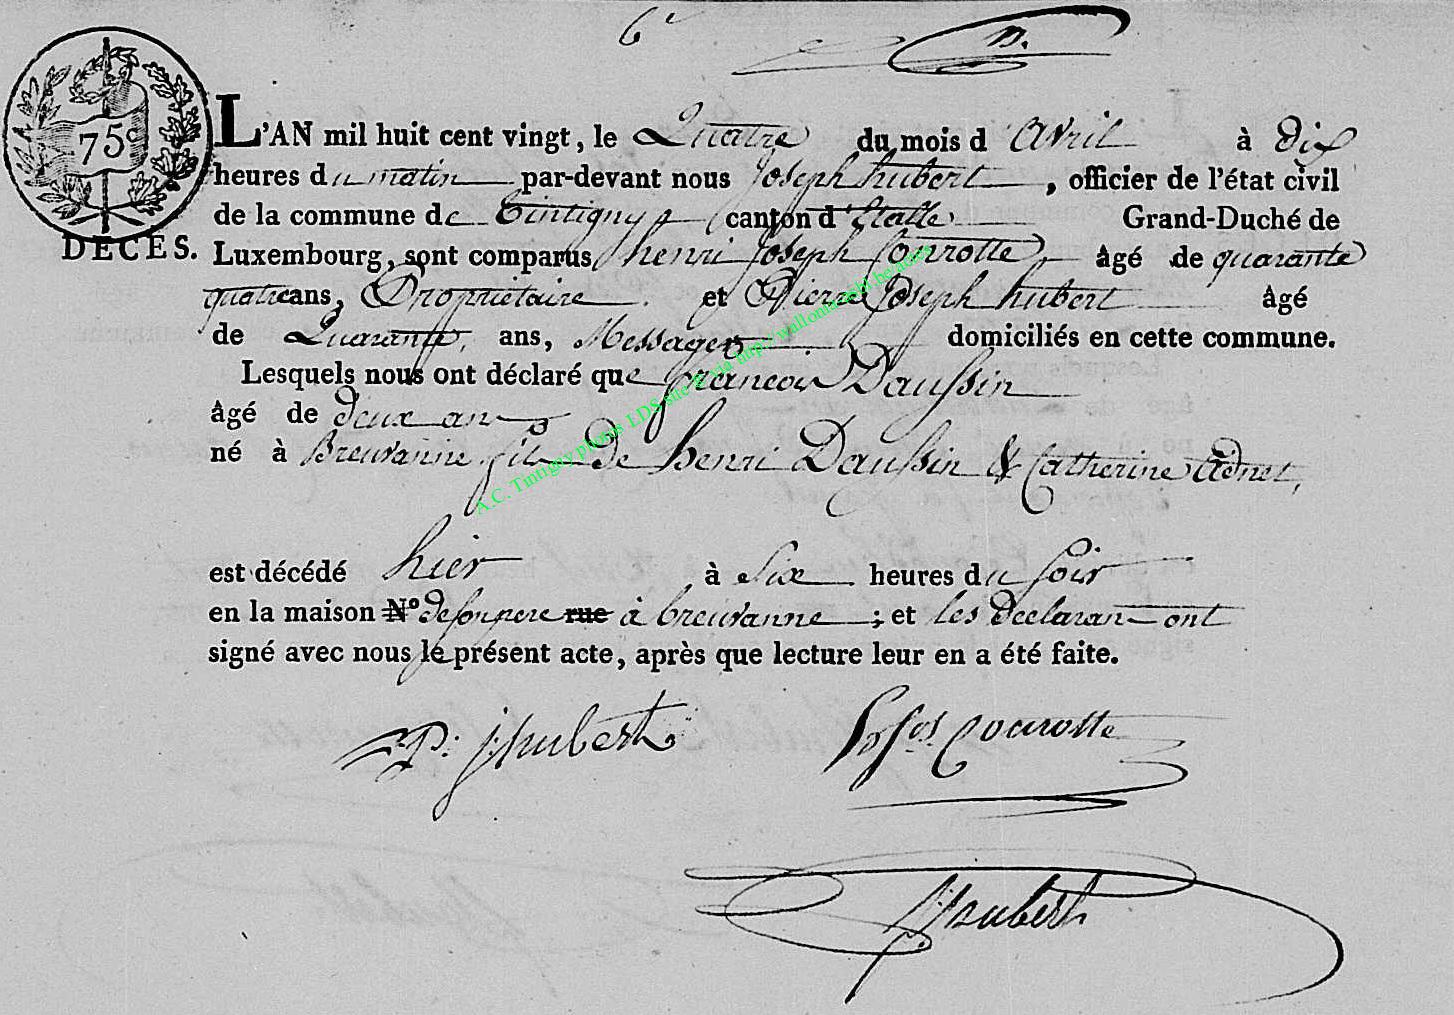 6e
75c
L'AN mil huit cent vingt, le Quatre du mois d'avril à dix
heures du matin par-devant nous Joseph hubert, officier de l'état civil
de la commune de Tintigny canton d'Etalle Grand-Duché de
DÉCÈS. Luxembourg, sont comparus henri Joseph Courotte, âgé de quarante
quatre ans, Propriétaire et Pierre Joseph hubert âgé
de Quarante, ans, Messager domiciliés en cette commune.
Lesquels nous ont déclaré que françois Daussin
âgé de deux ans
né à Breuvanne fils de henri Daussin & Catherine Adnet,
est décédé hier à Six heures du soir
en la maison N° de son pere rue à breuvanne; et les declarans ont
signé avec nous le présent acte, après que lecture leur en a été faite.
P. j. hubert Courotte
J hubert
A.C. Tintigny photos LDS site